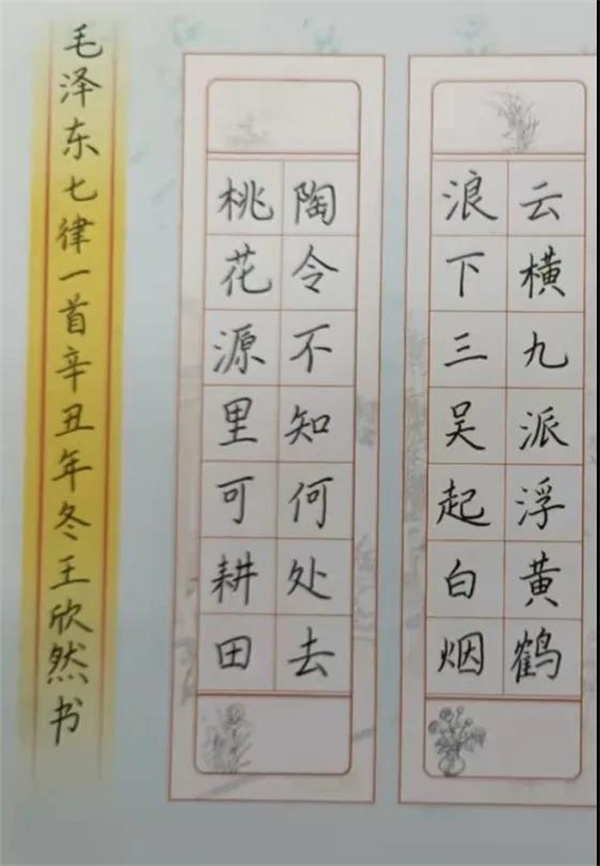 云横九派浮黄鹤
浪下三吴起白烟
陶令不知何处去
桃花源里可耕田
毛泽东七律一首辛丑年冬王欣然书